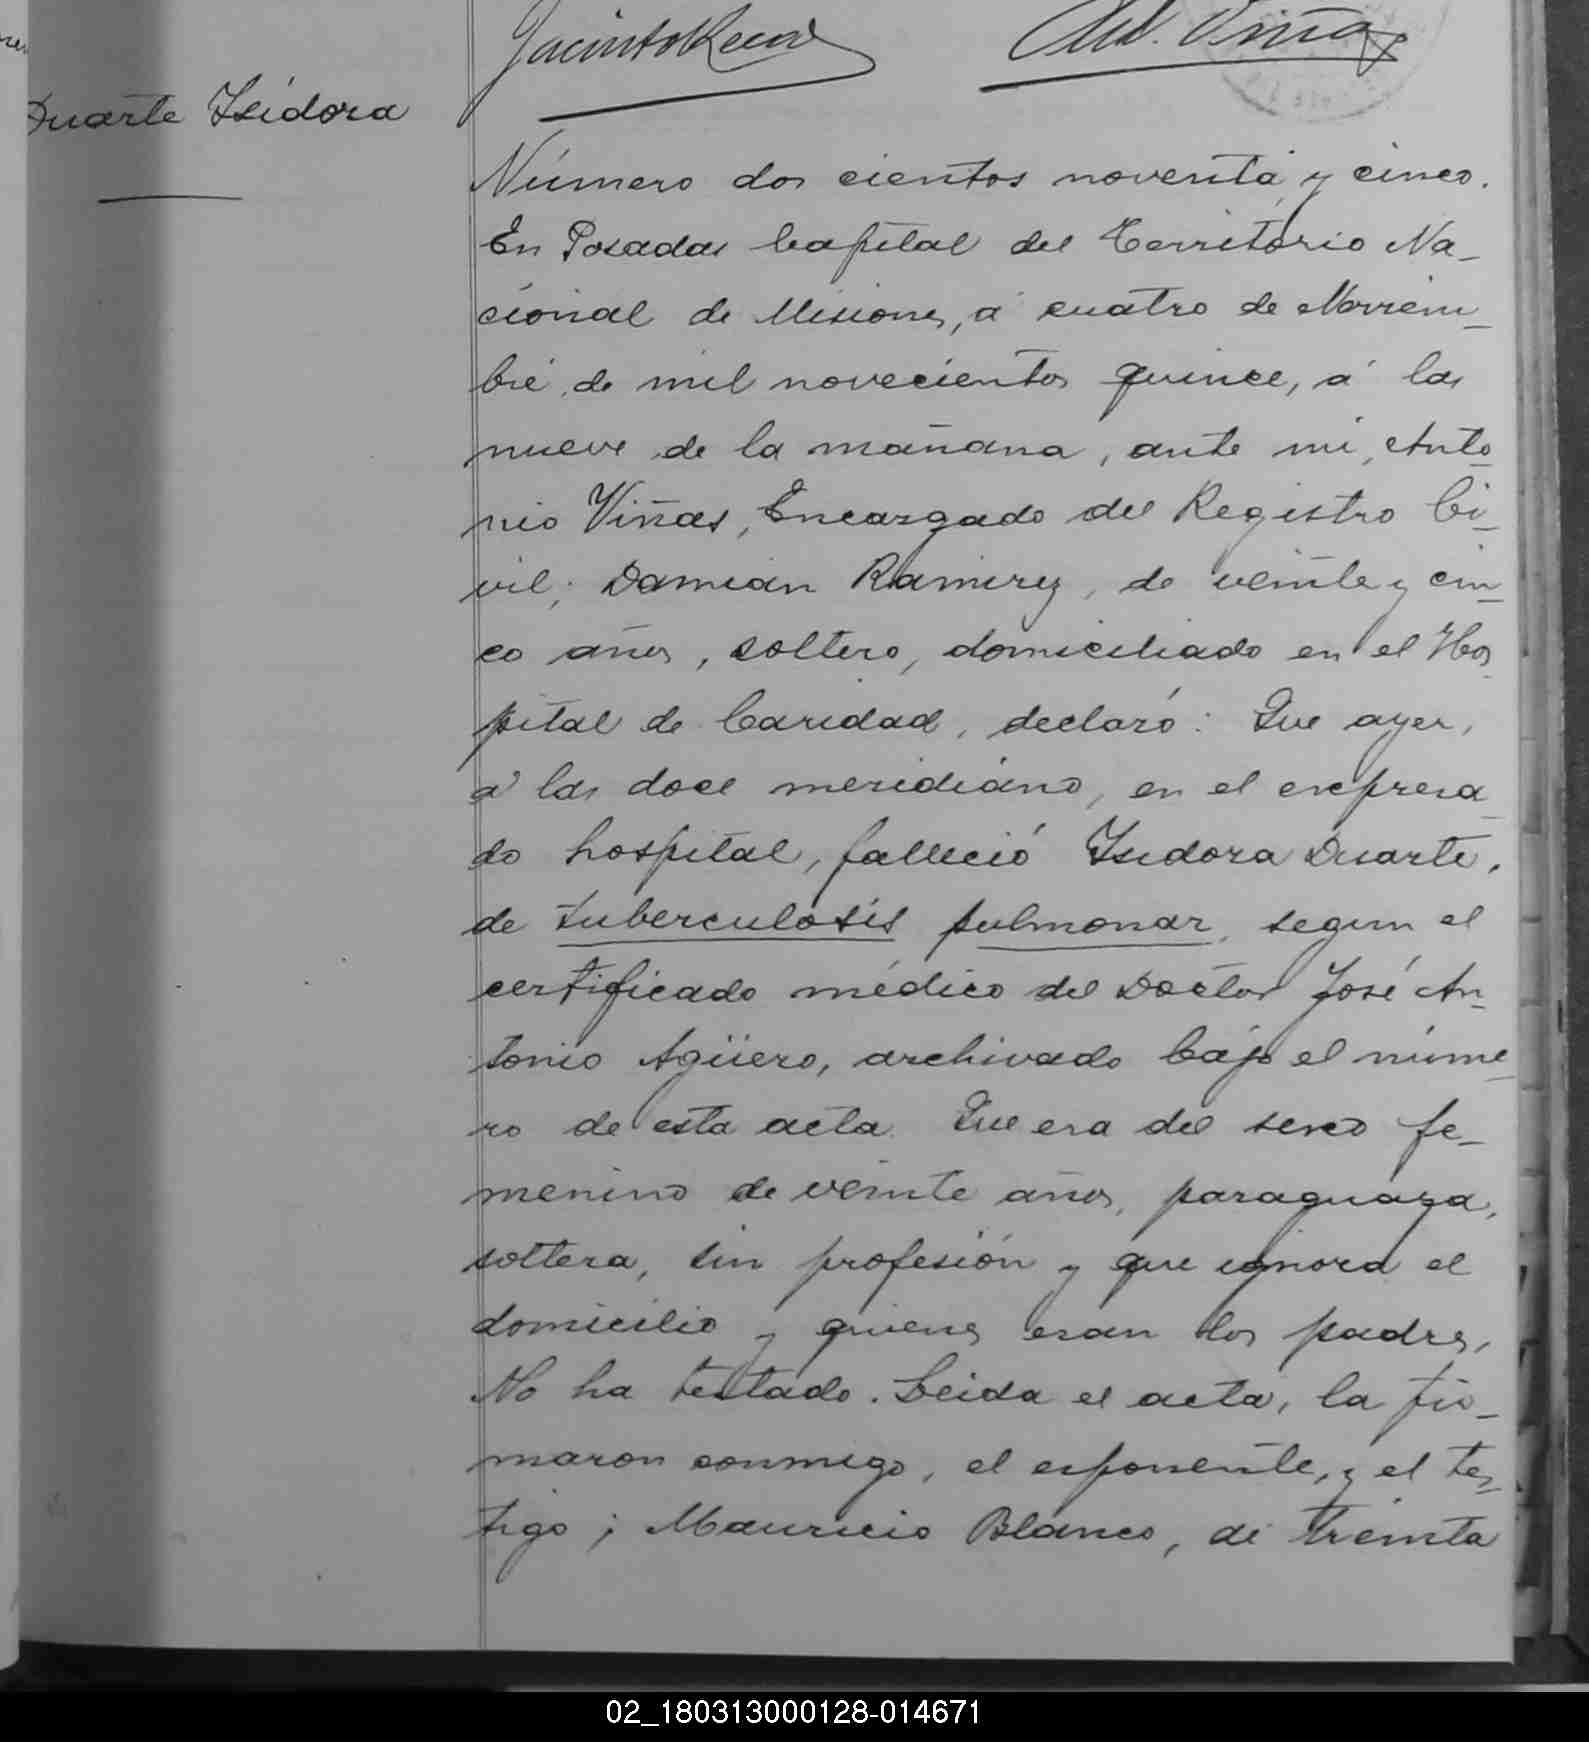 Jacinto
Ant. Viñas
Duarte Isidora
Número dos cientos noventa y cinco.
En Posadas Capital del Territorio Na-
cional de Misiones, á cuatro de Noviem-
bre de mil novecientos quince, á las
nueve de la mañana, ante mi, Anto-
nio Viñas, Encargado del Registro Ci-
vil; Damian Ramirez, de veinte y cin-
co años, soltero, domiciliado en el Hos-
pital de Caridad, declaró: Que ayer,
á las doce meridiano, en el expresa-
do hospital, falleció Isidora Duarte,
de tuberculosis pulmonar, segun el
certificado médico del Doctor José An-
tonio Agüero, archivado bajo el núme-
ro de esta acta. Que era del sexo fe-
menino de veinte años, paraguaya,
soltera, sin profesión y que ignora el
domicilio y quienes eran los padres,
No ha testado. Leida el acta, la fir-
maron conmigo, el exponente, y el tes-
tigo; Mauricio Blanco, de treinta
02_180313000128-014671